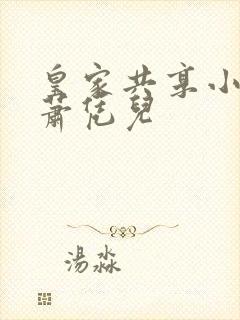 皇家共享小
蕭恁兒
湯淼